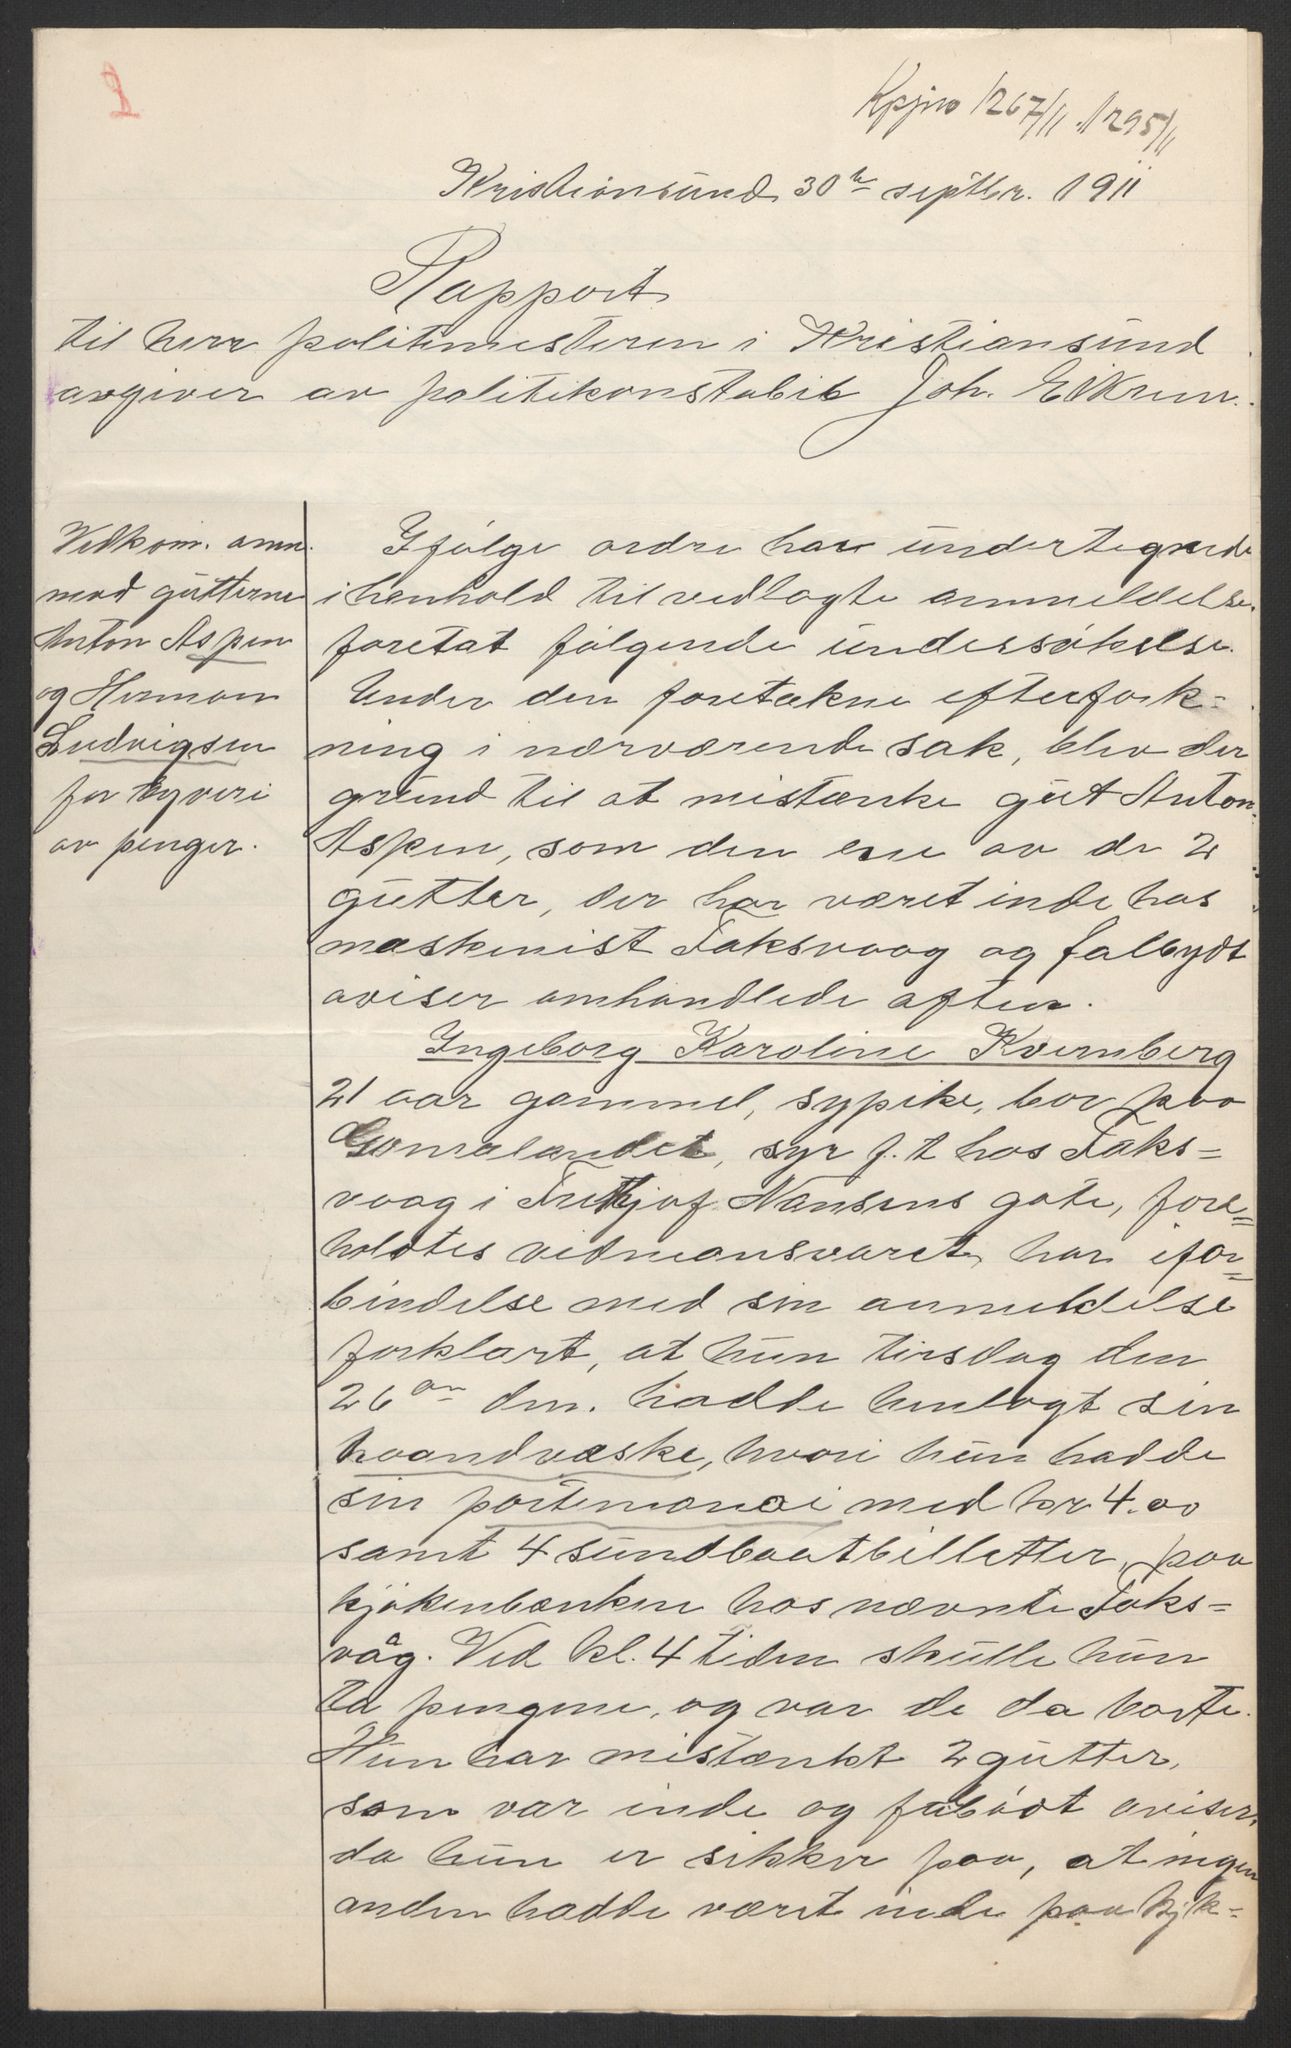 2
Kpjno 1267/11. 1295/11
Kristiansund 30te septbr. 1911
Rapport
til herr politimesteren i Kristiansund
avgiver av politikonstabil Joh. Eikrem.
Vedkom. anm.
mod gutterne
Anton Aspen
og Herman
Ludvigsen
for tyveri
av penger.
Ifølge ordre har undertegnede
i henhold til vedlagte anmeldelse.
foretat følgende undersøkelse.
Under den foretakne efterfork=
ning i nærværende sak, blev der
grund til at mistænke gut Anton
Aspen, som den ene av de 2
gutter, der har været inde hos
maskinist Taksvaag og falbydt
aviser omhandlede aften.
Ingeborg Karoline Kvernberg
21 aar gammel, sypike, bor paa
Gomalandet, syr f. t hos Taks=
vaag i Frithjof Nansens gate, fore=
holdtes vidneansvaret, har i for=
bindelse med sin anmeldelse
forklart, at hun tirsdag den
26de dm. hadde henlagt sin
haandvæske, hvori hun hadde
sin portemonai med kr 4.00
samt 4 sundbaatbilletter, paa
kjøkenbænken hos nævnte Taks=
våg. Ved kl. 4 tiden skulle hun
ta pengene, og var de da borte.
Hun har mistænkt 2 gutter,
som var inde og falbødt aviser,
da hun er sikker paa, at ingen
anden hadde været inde paa kjk=